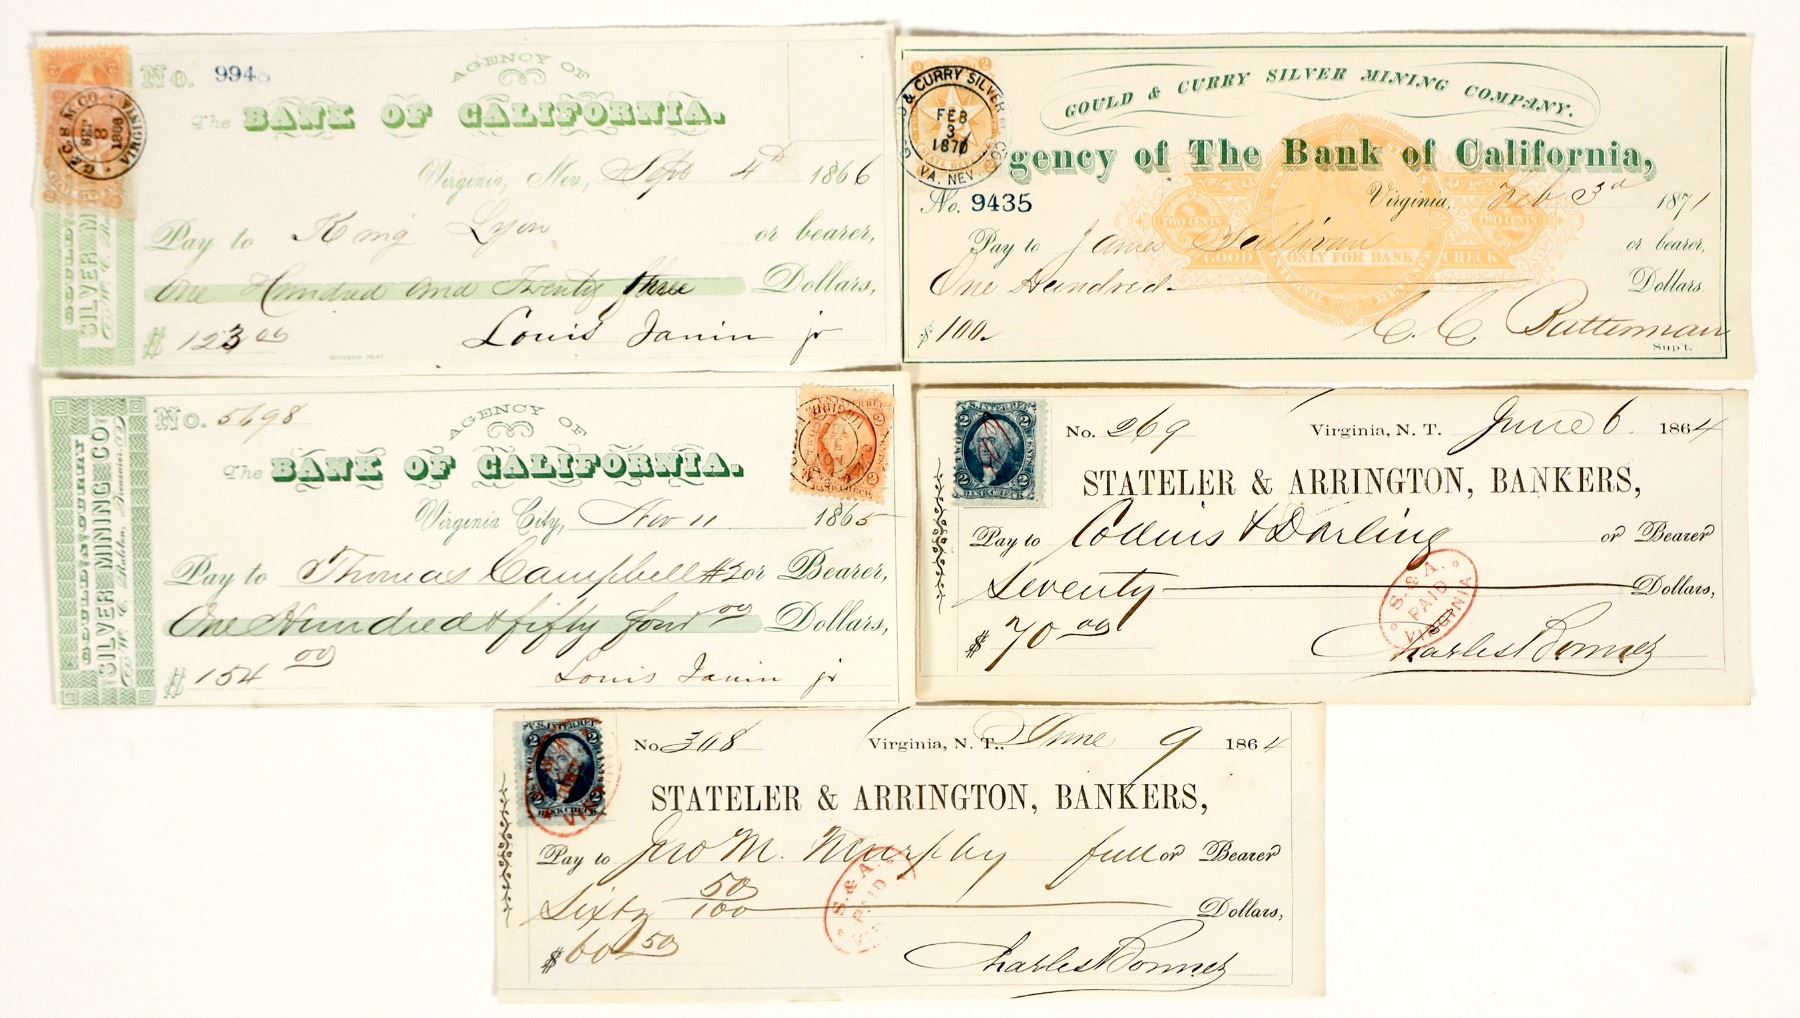 No. 994
AGENCY OF
The BANK OF CALIFORNIA.
Virginia, Nev., Sept 4th 1866
Pay to King Lyon or bearer,
One Hundred and Twenty three Dollars,
$ 123 00
Louis Janin jr
GOULD & CURRY
SILVER M
G. & C. S. M. CO. VIRGINIA
SEP
8
1866
GOULD & CURRY SILVER MINING COMPANY.
gency of The Bank of California,
Virginia, Feb 3d 1871
No. 9435
Pay to James Sullivan or bearer,
One Hundred Dollars
$ 100.
C. C. Batterman
Sup't.
TWO CENTS
TWO CENTS
GOOD ONLY FOR BANK CHECK
& CURRY SILVER
FEB
3
1870
VA. NEV.
No. 5698
AGENCY OF
The BANK OF CALIFORNIA.
Virginia City, Nov 11 1865
Pay to Thomas Campbell #3 or Bearer,
One Hundred & fifty four 00 Dollars,
$ 154 00
Louis Janin jr
GOULD & CURRY
SILVER MINING CO.
BANK CHECK
No. 269 Virginia, N. T. June 6 1864
STATELER & ARRINGTON, BANKERS,
Pay to Collins & Darling or Bearer
Seventy Dollars,
$ 70 00
Charles Bonner
S. & A.
PAID
VIRGINIA
U.S. INTER. REV.
2 2
TWO CENTS
2 2
BANK CHECK
No 308 Virginia, N. T., June 9 1864
STATELER & ARRINGTON, BANKERS,
Pay to Jno M. Murphy full or Bearer
Sixty 50/100 Dollars,
$ 60 50
Charles Bonner
S. & A.
PAID
U.S. INTER. REV.
2 2
BANK CHECK